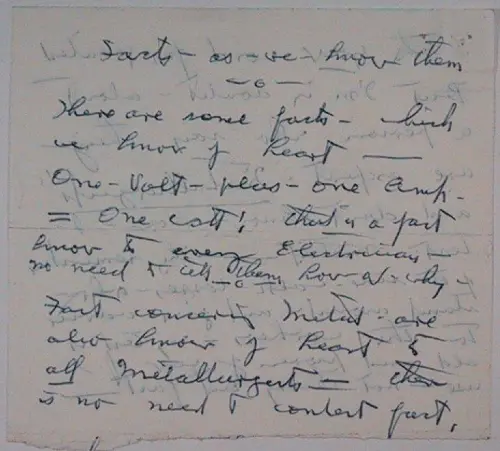 Facts - as - we - know them
- o -
There are some facts - which
we know of heart —
One - Volt - plus - one Amp -
= One watt! that is a fact
know to every Electrician -
no need to tell them how or why -
- o -
Fact concerning Metal - are
also know of heart to
all Metallurgests = ther
is no need to contest fact,